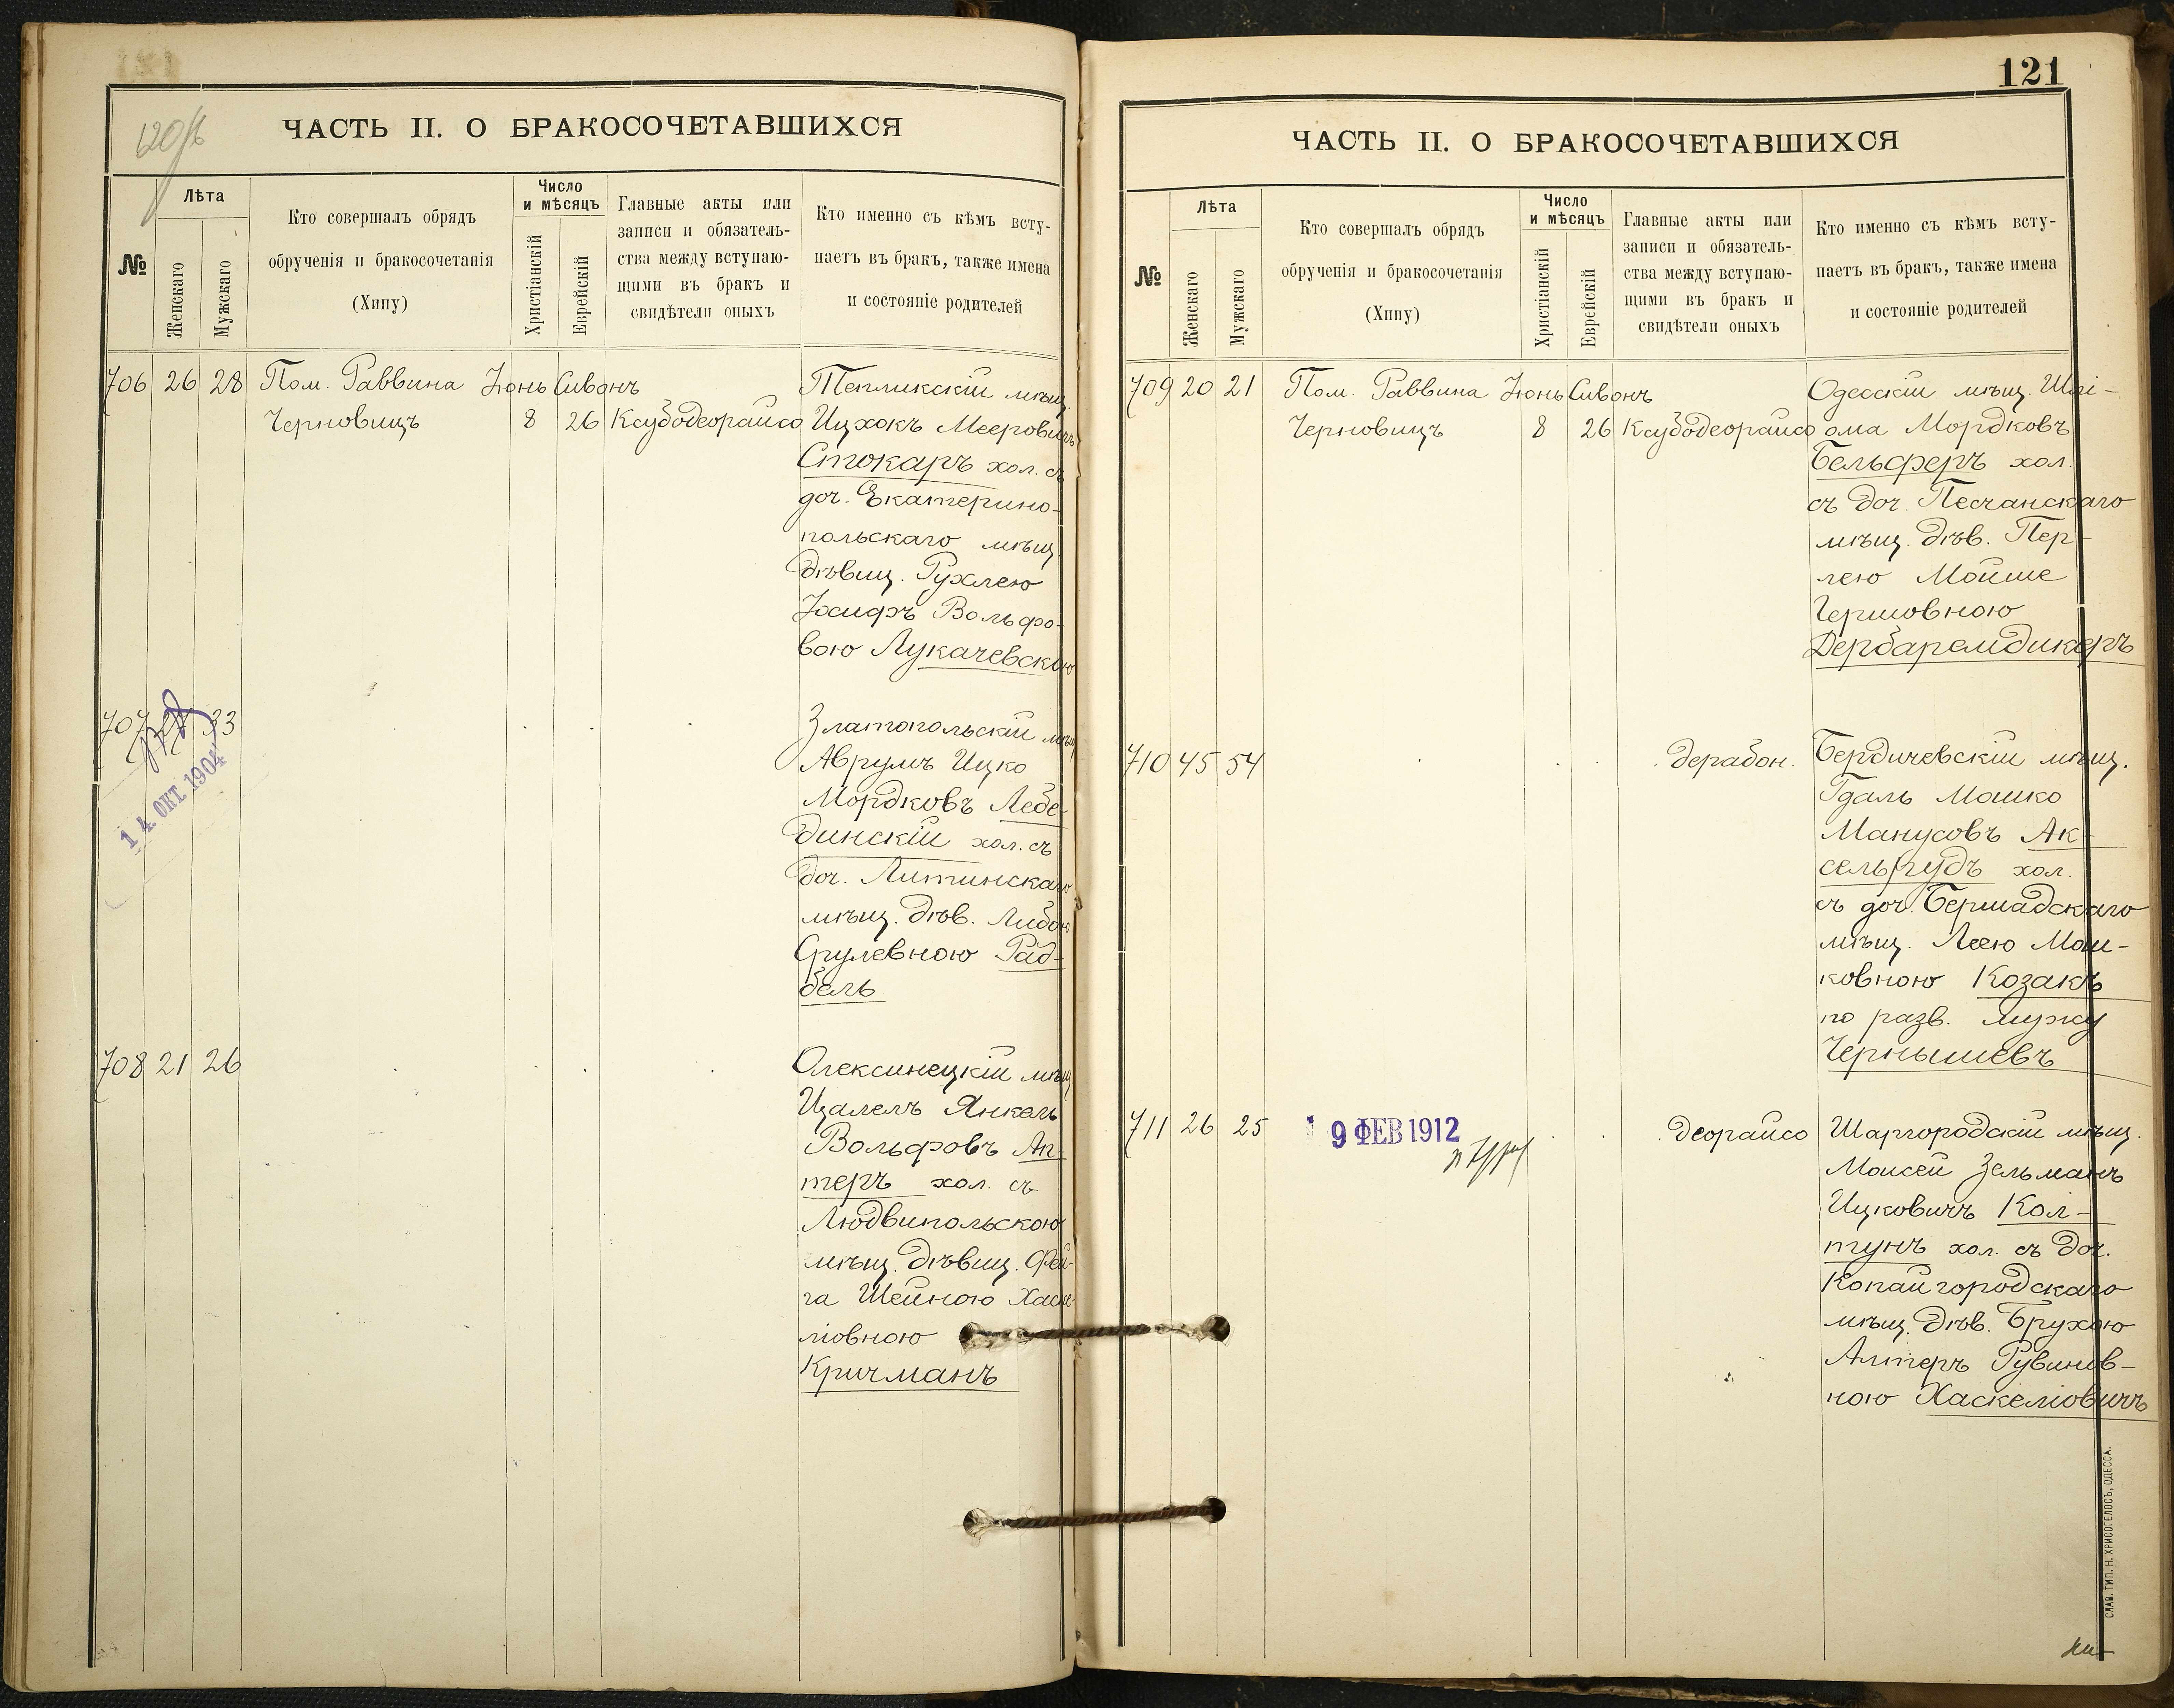 120 об
ЧАСТЬ II. О БРАКОСОЧЕТАВШИХСЯ
№
Лѣта
Женскаго
Мужскаго
Кто совершалъ обрядъ
обрученія и бракосочетанія
(Хипу)
Число
и мѣсяцъ
Христіанскій
Еврейскій
Главные акты или
записи и обязатель-
ства между вступаю-
щими въ бракъ и
свидѣтели оныхъ
Кто именно съ кѣмъ всту-
паетъ въ бракъ, также имена
и состояніе родителей
706 26 28 Пом. Раввина Іюнь Сивонъ Тепликскій мѣщ.
Черновицъ 8 26 Ксубодеорайсо Ицхокъ Мееровичъ
Стокаръ хол. съ
доч. Екатерино-
польскаго мѣщ.
дѣвиц. Рухлею
Іосифъ Вольфо-
вою Лукачевскою
707 33 Златопольскій мѣщ.
14 ОКТ. 1904
Аврумъ Ицко
Мордковъ Лебе-
динскій хол. съ
доч. Литинскаго
мѣщ. дѣв. Либою
Срулевною Рад-
бель
708 21 26 Олексинецкій мѣщ.
Цалелъ Янкель
Вольфовъ Ап-
теръ хол. съ
Людвипольскою
мѣщ. дѣвиц. Фей-
га Шейною Хаске-
ліовною
Кричманъ
121
ЧАСТЬ II. О БРАКОСОЧЕТАВШИХСЯ
№
Лѣта
Женскаго
Мужскаго
Кто совершалъ обрядъ
обрученія и бракосочетанія
(Хипу)
Число
и мѣсяцъ
Христіанскій
Еврейскій
Главные акты или
записи и обязатель-
ства между вступаю-
щими въ бракъ и
свидѣтели оныхъ
Кто именно съ кѣмъ всту-
паетъ въ бракъ, также имена
и состояніе родителей
709 20 21 Пом. Раввина Іюнь Сивонъ Одесскій мѣщ. Шлі-
Черновицъ 8 26 Ксубодеорайсо ома Мордковъ
Бельферъ хол.
съ доч. Песчанскаго
мѣщ. дѣв. Пер-
лею Мойше
Гершовною
Дербаремдикеръ
710 45 54 дерабон. Бердичевскій мѣщ.
Гдаль Мошко
Манусовъ Ак-
сельрудъ хол.
съ доч. Бершадскаго
мѣщ. Леею Мош-
ковною Козакъ
по разв. мужу
Чернышевъ
711 26 25 9 ФЕВ 1912 деорайсо Шаргородскій мѣщ.
Моисей Зельманъ
Ицковичъ Кол-
тунъ хол. съ доч.
Копайгородскаго
мѣщ. дѣв. Брухою
Алтеръ Рувинов-
ною Хаскеліовичъ
СЛАВ. ТИП. Н. ХРИСОГЕЛОСЪ, ОДЕССА.